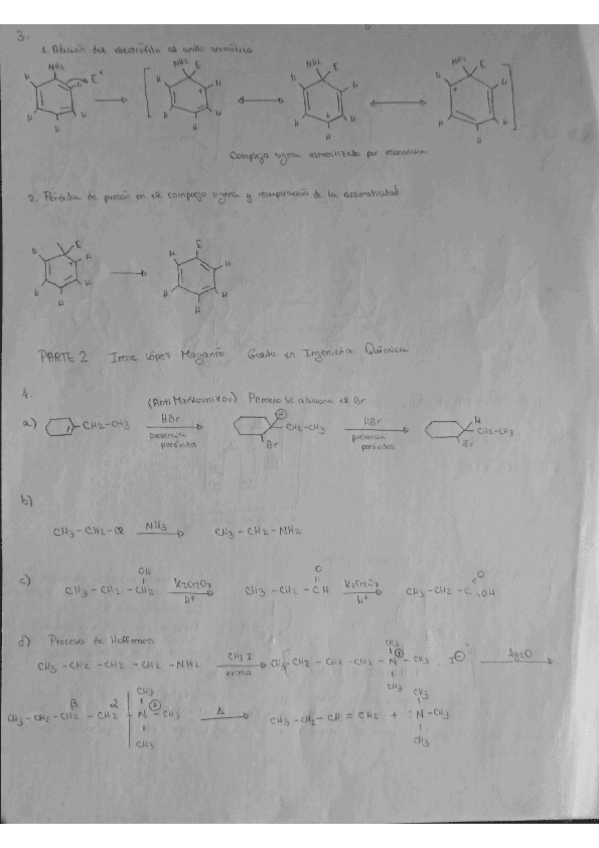 3.
1. Adición del electrófilo al anillo aromático
NH2 H E+ H H H
NH2 E H H H H
NH2 E H H H H
NH2 E H H H H
Complejo sigma estabilizado por resonancia
2. Pérdida de protón en el complejo sigma y recuperación de la aromaticidad
E H H H H H
E H H H H
PARTE 2 Irene López Grado en Ingeniería Química
4.
(AntiMarkovnikov) Primero se adiciona el Br
a) CH2-CH3 HBr presencia peróxidos CH2-CH3 Br HBr presencia peróxidos H CH2-CH3 Br
b)
CH3-CH2-Cl NH3 CH3-CH2-NH2
c) CH3-CH2-CH2 OH K2Cr2O7 H+ CH3-CH2-CH O K2Cr2O7 H+ CH3-CH2-C O OH
d) Proceso de Hoffmann
CH3-CH2-CH2-CH2-NH2 CH3I exceso CH3-CH2-CH2-CH2-N-CH3 CH3 CH3 I Ag2O
CH3-CH2-CH2-CH2 β α N-CH3 CH3 CH3 Δ CH3-CH2-CH=CH2 + :N-CH3 CH3 CH3